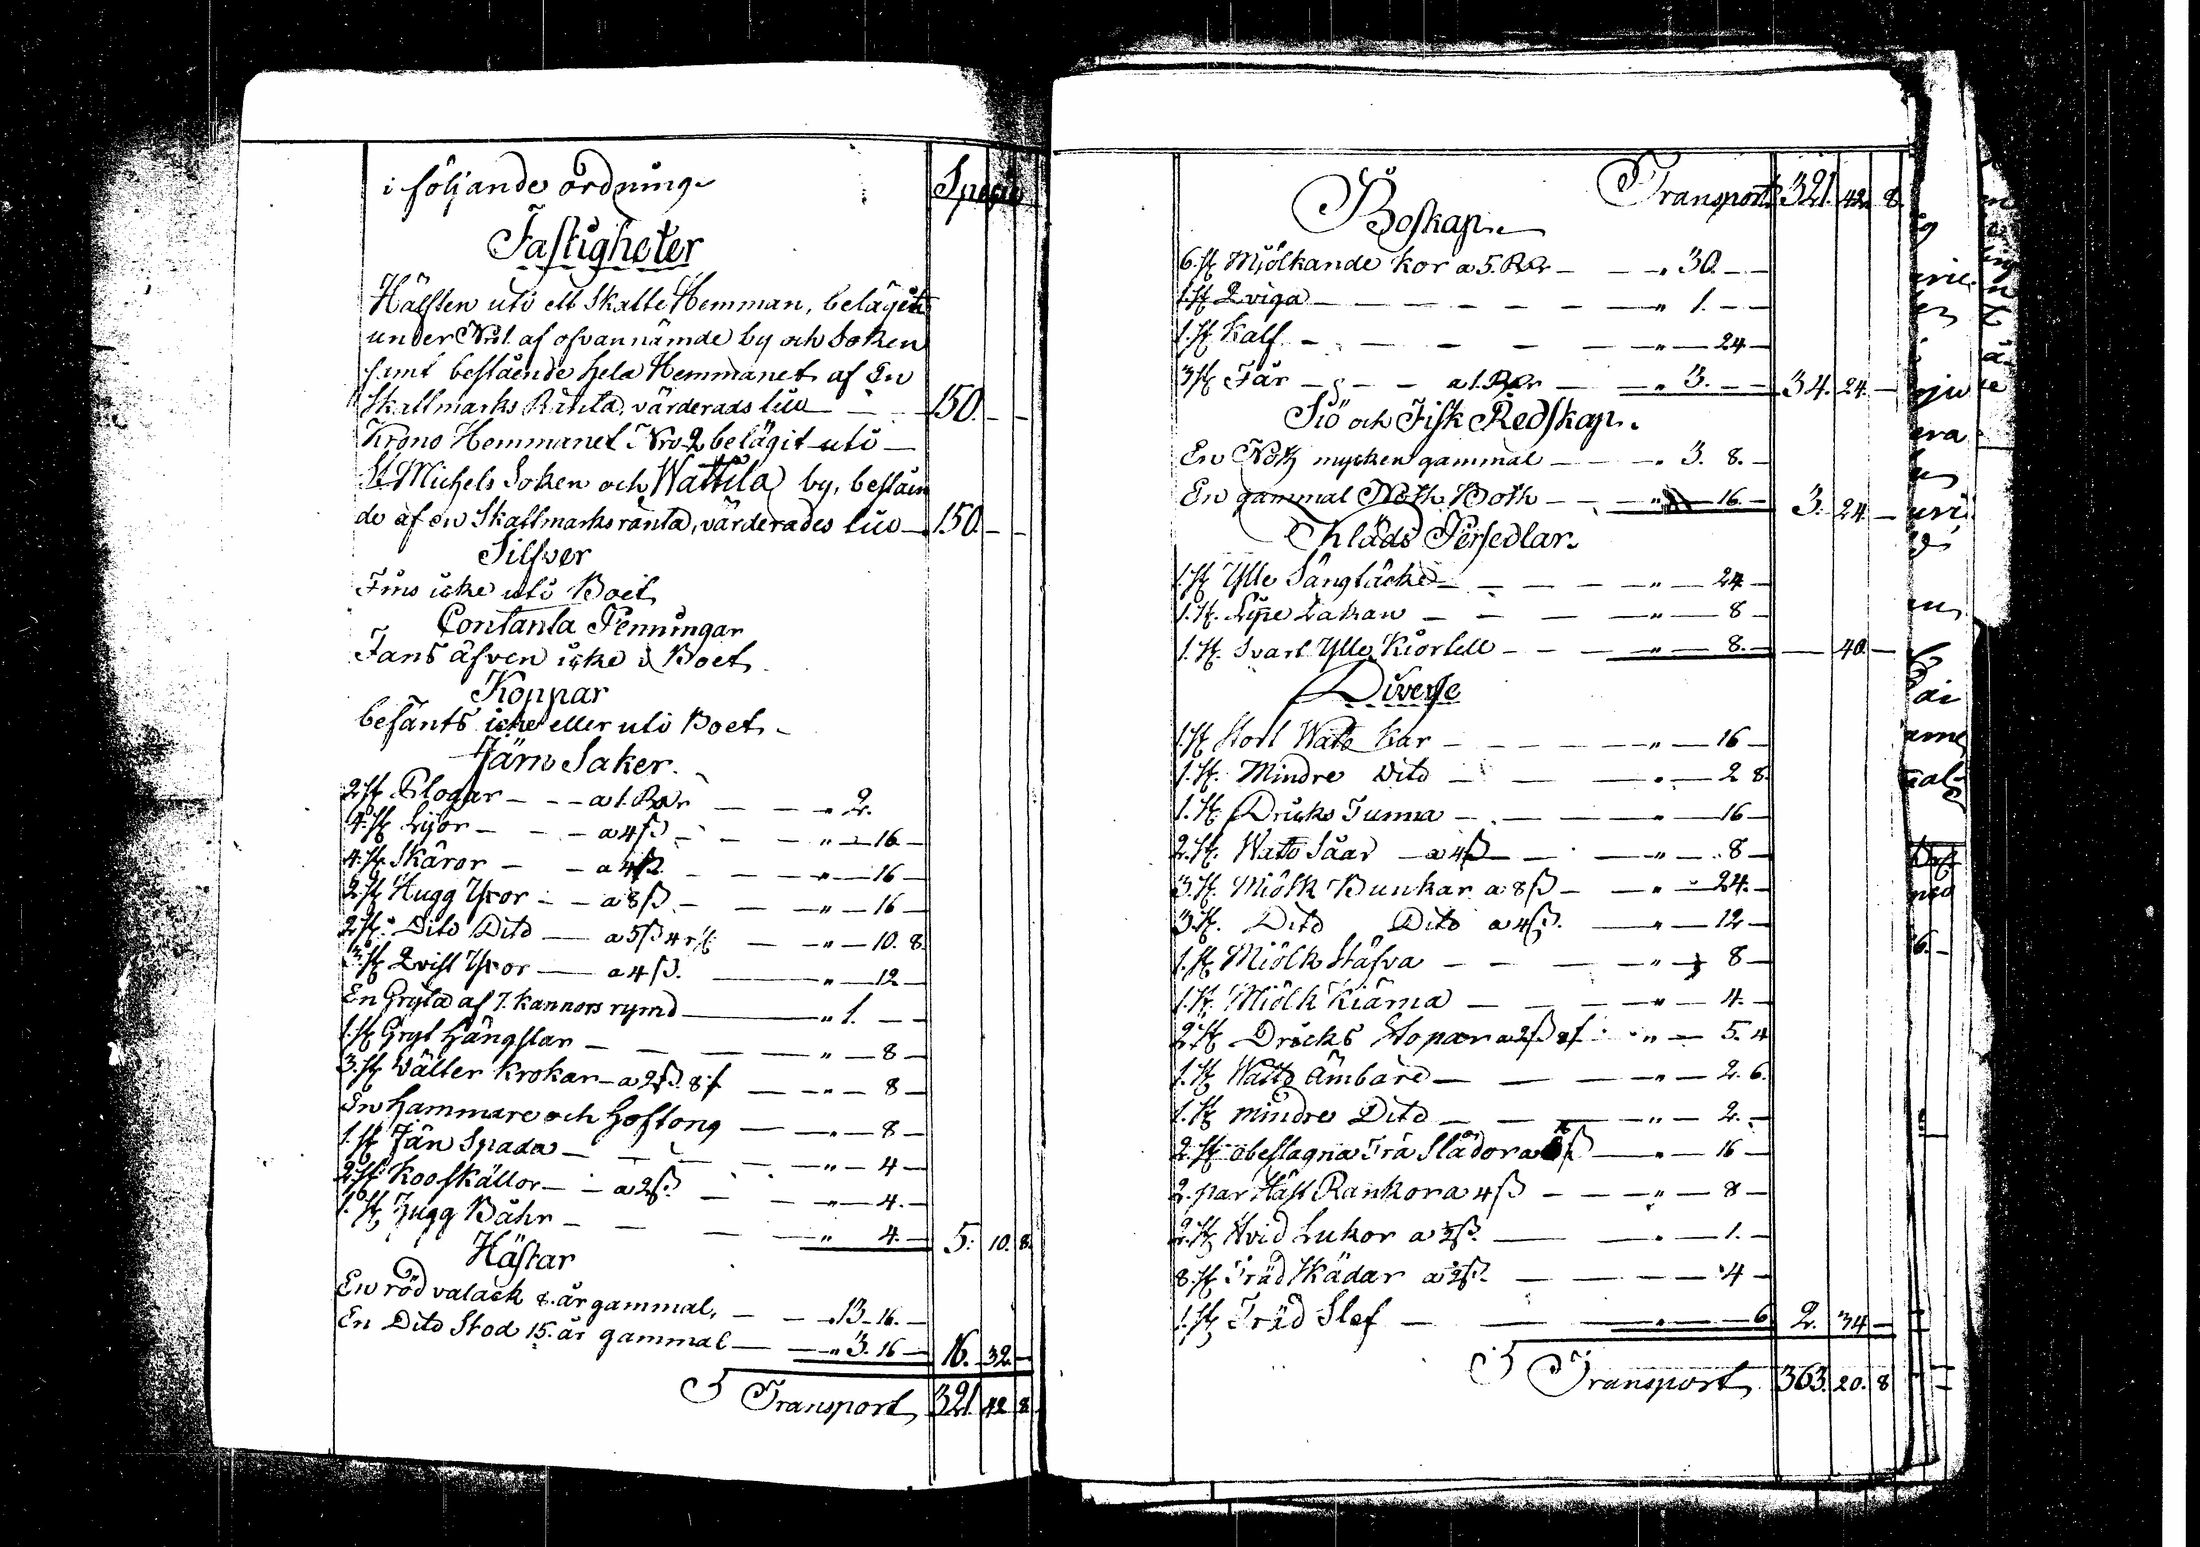 i följande ordning Specie
Fastigheter
Hälften uti ett Skatte Hemman, belägit
under Nro 1. af ofvannämde by och Soken
samt bestående hela Hemmanet af En
Skattmarks Ränta, värderads till — 150. — —
Krono Hemmanet Nro 2 belägit uti —
St Michels Soken och Wattila by, beståen
de af en Skattmarks ränta, värderades till — 150. — —
Silfver
Fins icke uti Boet
Contanta Penningar
Fans äfven icke i Boet
Koppar
befants icke eller uti Boet
Järn Saker.
2. st. Plogar — a 1. Rdr — „ 2.
4. st. Lijor — a 4 ß — „ — 16 —
4. st. Skäror — a 4 ß — „ — 16 —
2. st. Hugg Yxor — a 8 ß — „ — 16 —
2. st. Dito Dito — a 5 ß 4 r — „ — 10. 8.
3. st. Qvist Yxor — a 4 ß. — „ — 12 —
En Gryta af 7. kannors rymd — „ 1. — —
1. st. Gryt hängslar — „ — 8 —
3. st. Wälter Krokar — a 2 ß 8 — „ — 8 —
En hammare och hoftong — „ — 8 —
1. st. Jän Spada — „ — 4 —
2. st. Kooskällor — a 2 ß. — „ — 4. —
1. st. Hugg Båhr — „ 4. — 5. 10. 8.
Hästar
En röd valack 8. år gammal, — „ 13. 16. —
En Dito Stod 15. år gammal — „ 3. 16 — 16. 32. —
Transport 321. 42 8.
Transport 321. 42. 8.
Boskap.
6. st. Mjölkande Kor a 5. Rdr — „ 30. — —
1. st. Qviga — „ 1. — —
1. st. Kalf — „ — 24 —
3. st. Får — a 1. Rdr — „ 3. — — 34. 24. —
Siö och Fisk Redskap.
En Noth mycken gammal — „ 3. 8. —
En gammal Noth Both — „ — 16. — 3. 24. —
Kläds Persedlar.
1. st. Ylle Sängtäcke — „ — 24 —
1. st. Lakan — „ — 8 —
1. st. Svart Ylle Kiortell — „ — 8. — — 40. —
Diverse
1. st. Stort Watt Kar — „ — 16 —
1. st. Mindre Dito — „ — 2 8.
1. st. Dricks Tunna — „ — 16 —
2. st. Watt Såar — a 4 ß — „ — 8 —
3. st. Miölk Bunkar a 8 ß — „ — 24. —
3. st. Dito Dito a 4 ß. — „ — 12 —
1. st. Miölk Stäfva — „ — 8 —
1. st. Miölk Kiärna — „ — 4. —
2. st. Dricks Stopar a 2 ß — „ — 5. 4
1. st. Watto Ämbare — „ — 2. 6.
1. st. mindre Dito — „ — 2. —
2. st. obeslagna Trä Slädor a ß — „ — 16 —
2. par Häst Rankor a 4 ß — „ — 8 —
2. st. Lukor a ½ ß. — „ — 1. —
8. st. Träd Skädar a ½ ß. — „ — 4 —
1. st. Träd Slef — „ — 6 2. 34 —
Transport 363. 20. 8